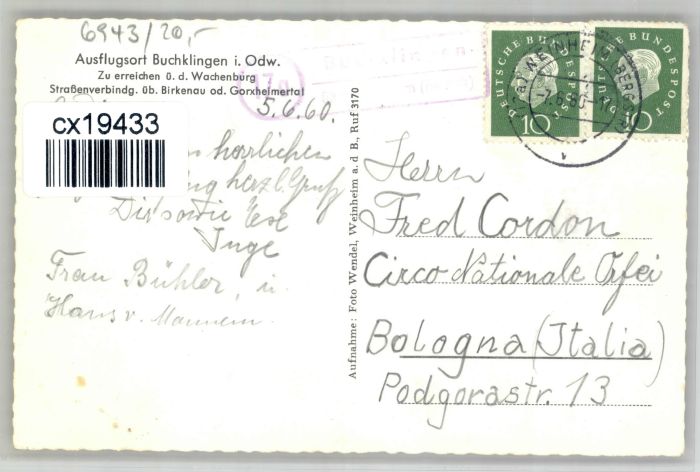 6943/20,-
Ausflugsort Buchklingen i. Odw.
Zu erreichen ü. d. Wachenburg
Straßenverbindg. üb. Birkenau od. Gorxheimertal
5.6.60.
cx19433
herrlichen
herzl. Gruß
Dir sowie Ese
Inge
Frau Bühler, u.
Hans v. Mannem.
Aufnahme: Foto Wendel, Weinheim a. d. B., Ruf 3170
17a
Buchklingen
DEUTSCHE BUNDESPOST
10
DEUTSCHE BUNDESPOST
10
WEINHEIM (BERGSTR)
7.6.60
Herrn
Fred Cordon
Circo Nationale Orfei
Bologna (Italia)
Podgorastr. 13